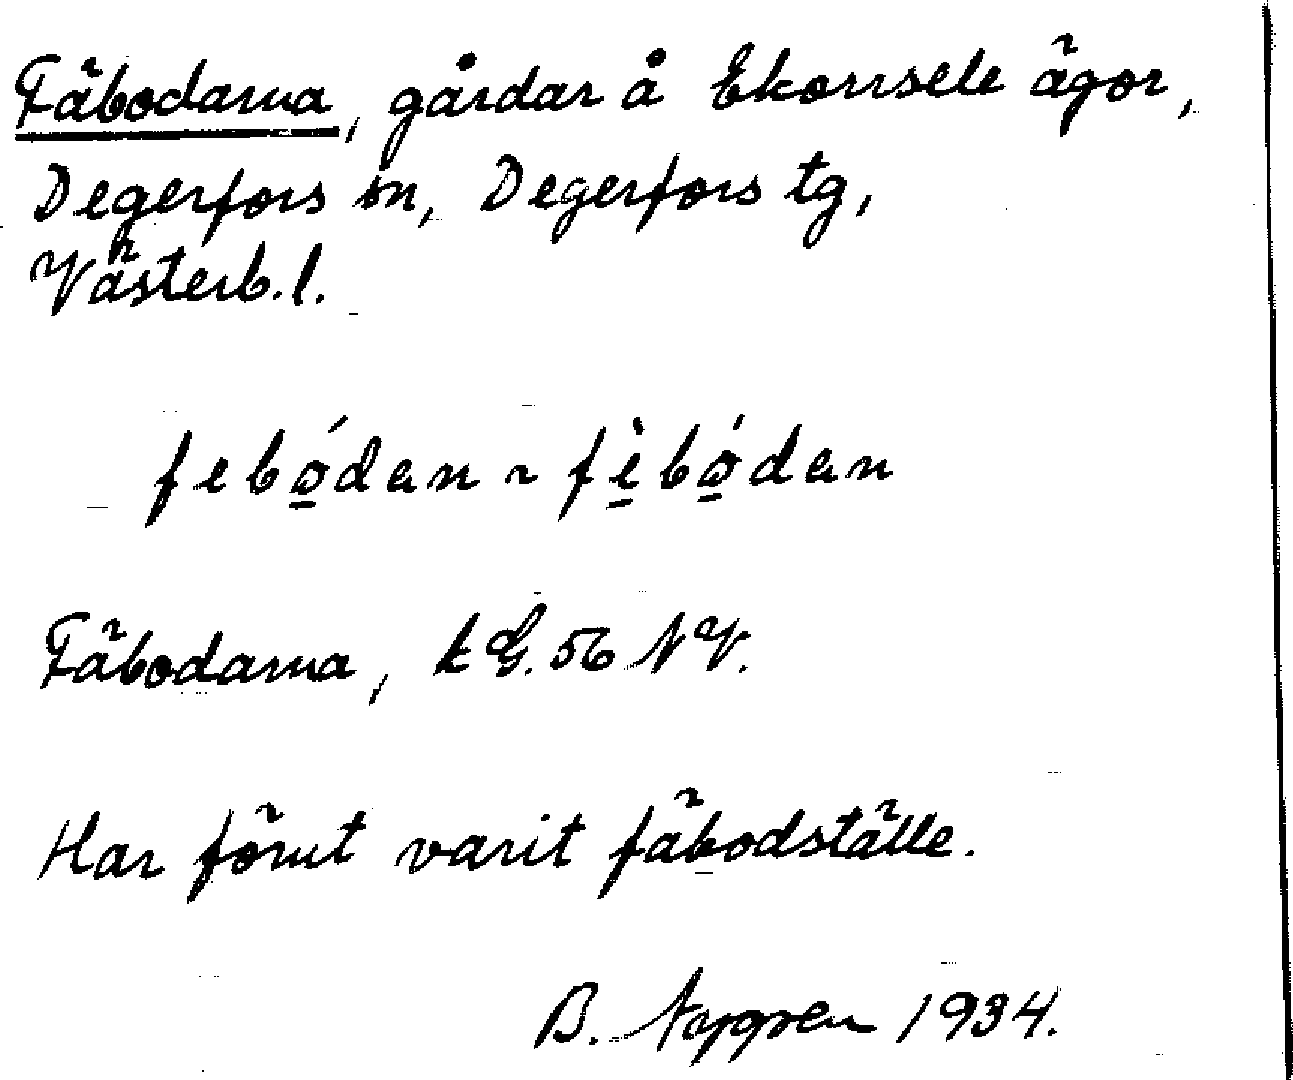 Fäbodarna, gårdar å Ekorrsele ägor,
Degerfors sn, Degerfors tg,
Västerb.l.
febo̲´dan ~ fè̲bó̲dan
Fäbodarna, k G. 56 NV.
Har förut varit fäbodställe.
B. Nygren 1934.